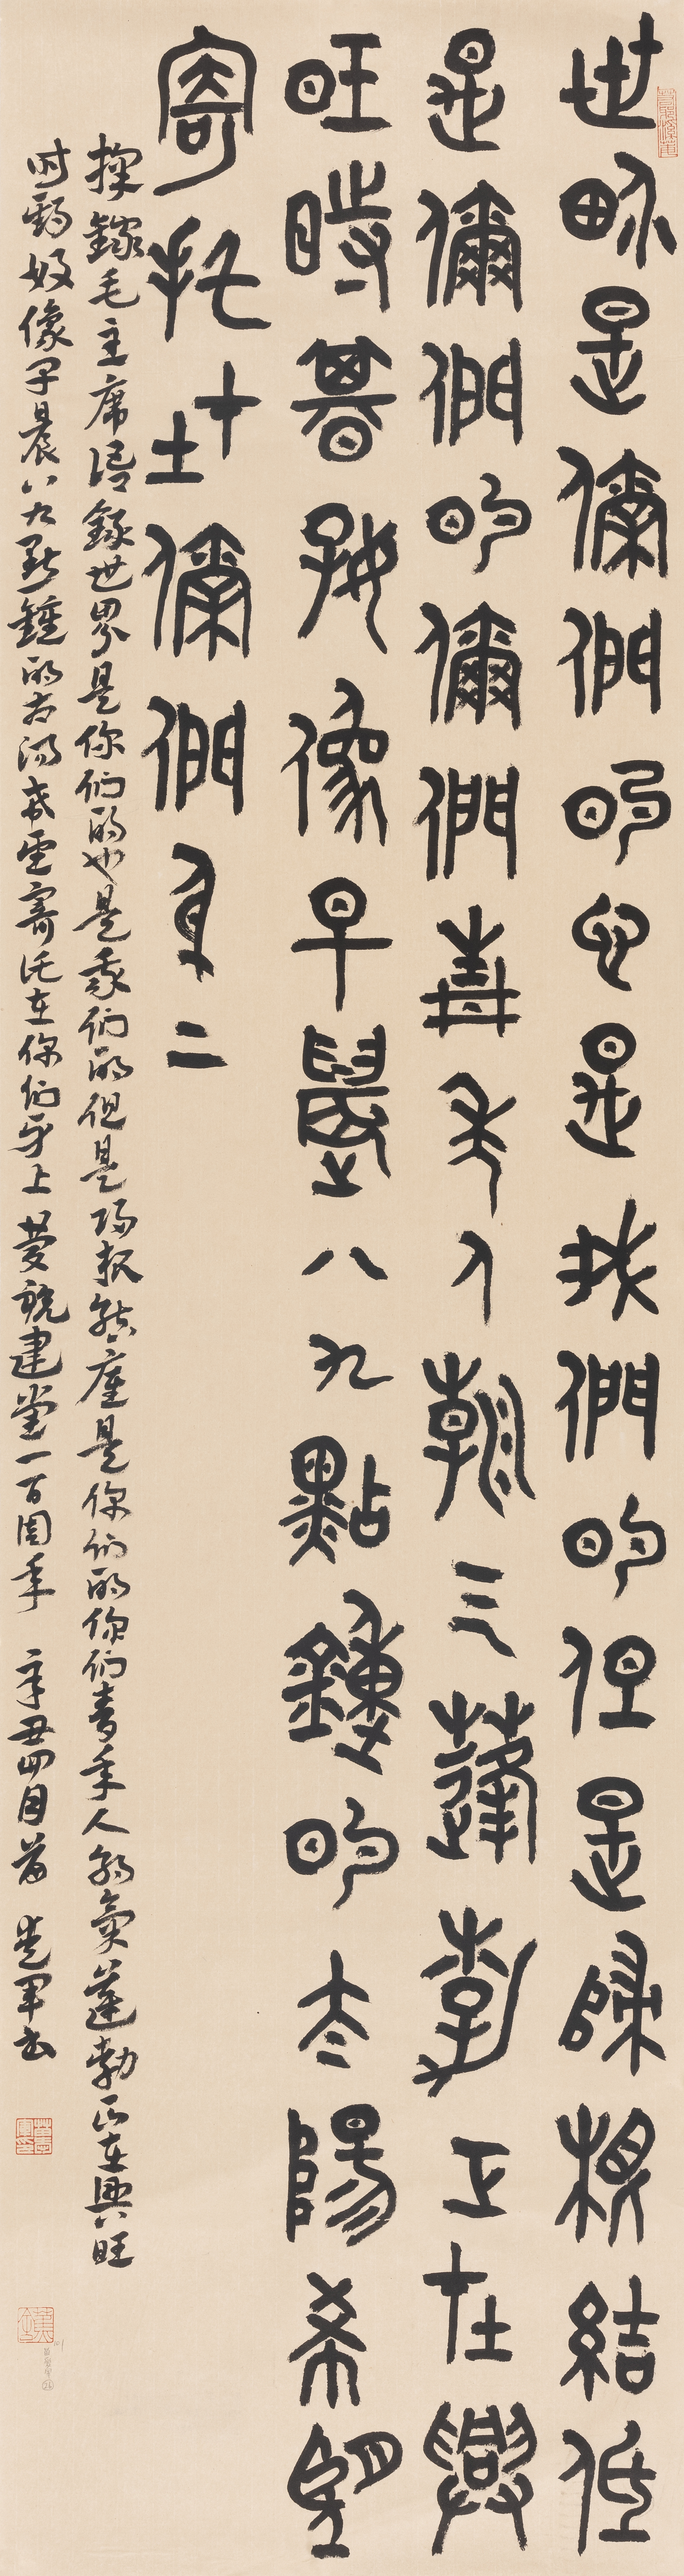 世界是你們的也是我們的但是歸根結底
是你們的你們青年人朝氣蓬勃正在興
旺時期好像早晨八九點鐘的太陽希望
寄托在你們身上
毛主席語錄世界是你们的也是我们的但是归根結底是你们的你们青年人朝氣蓬勃正在興旺
时期好像早晨八九點鐘的太阳希望寄托在你们身上 慶祝建党一百周年 辛丑四月 軍书